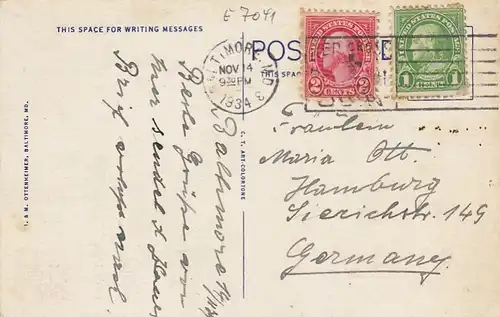 E 7041
THIS SPACE FOR WRITING MESSAGES
Baltimore 14/11 34
Beste Grüsse von
hier sendet
Brief
I. & M. OTTENHEIMER, BALTIMORE, MD.
C. T. ART-COLORTONE
POS
THIS SPAC
BALTIMORE, MD.
NOV 14
9 PM
1934
UNITED STATES POSTAGE
2 CENTS 2
UNITED STATES POSTAGE
1 1
RED CROSS
Fräulein
Maria Ott.
Hamburg
Sierichstr. 149
Germany.